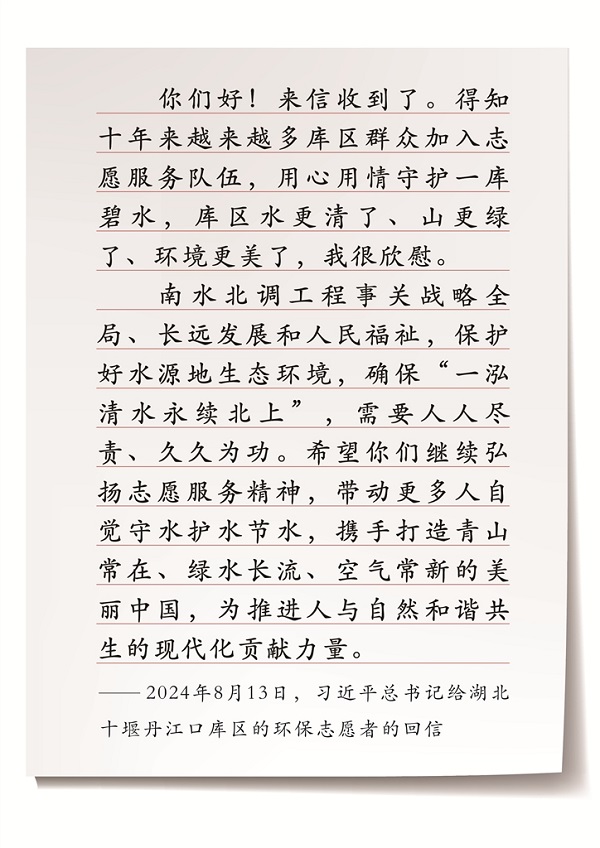 你们好！来信收到了。得知
十年来越来越多库区群众加入志
愿服务队伍，用心用情守护一库
碧水，库区水更清了、山更绿
了、环境更美了，我很欣慰。
南水北调工程事关战略全
局、长远发展和人民福祉，保护
好水源地生态环境，确保“一泓
清水永续北上”，需要人人尽
责、久久为功。希望你们继续弘
扬志愿服务精神，带动更多人自
觉守水护水节水，携手打造青山
常在、绿水长流、空气常新的美
丽中国，为推进人与自然和谐共
生的现代化贡献力量。
——2024年8月13日，习近平总书记给湖北
十堰丹江口库区的环保志愿者的回信